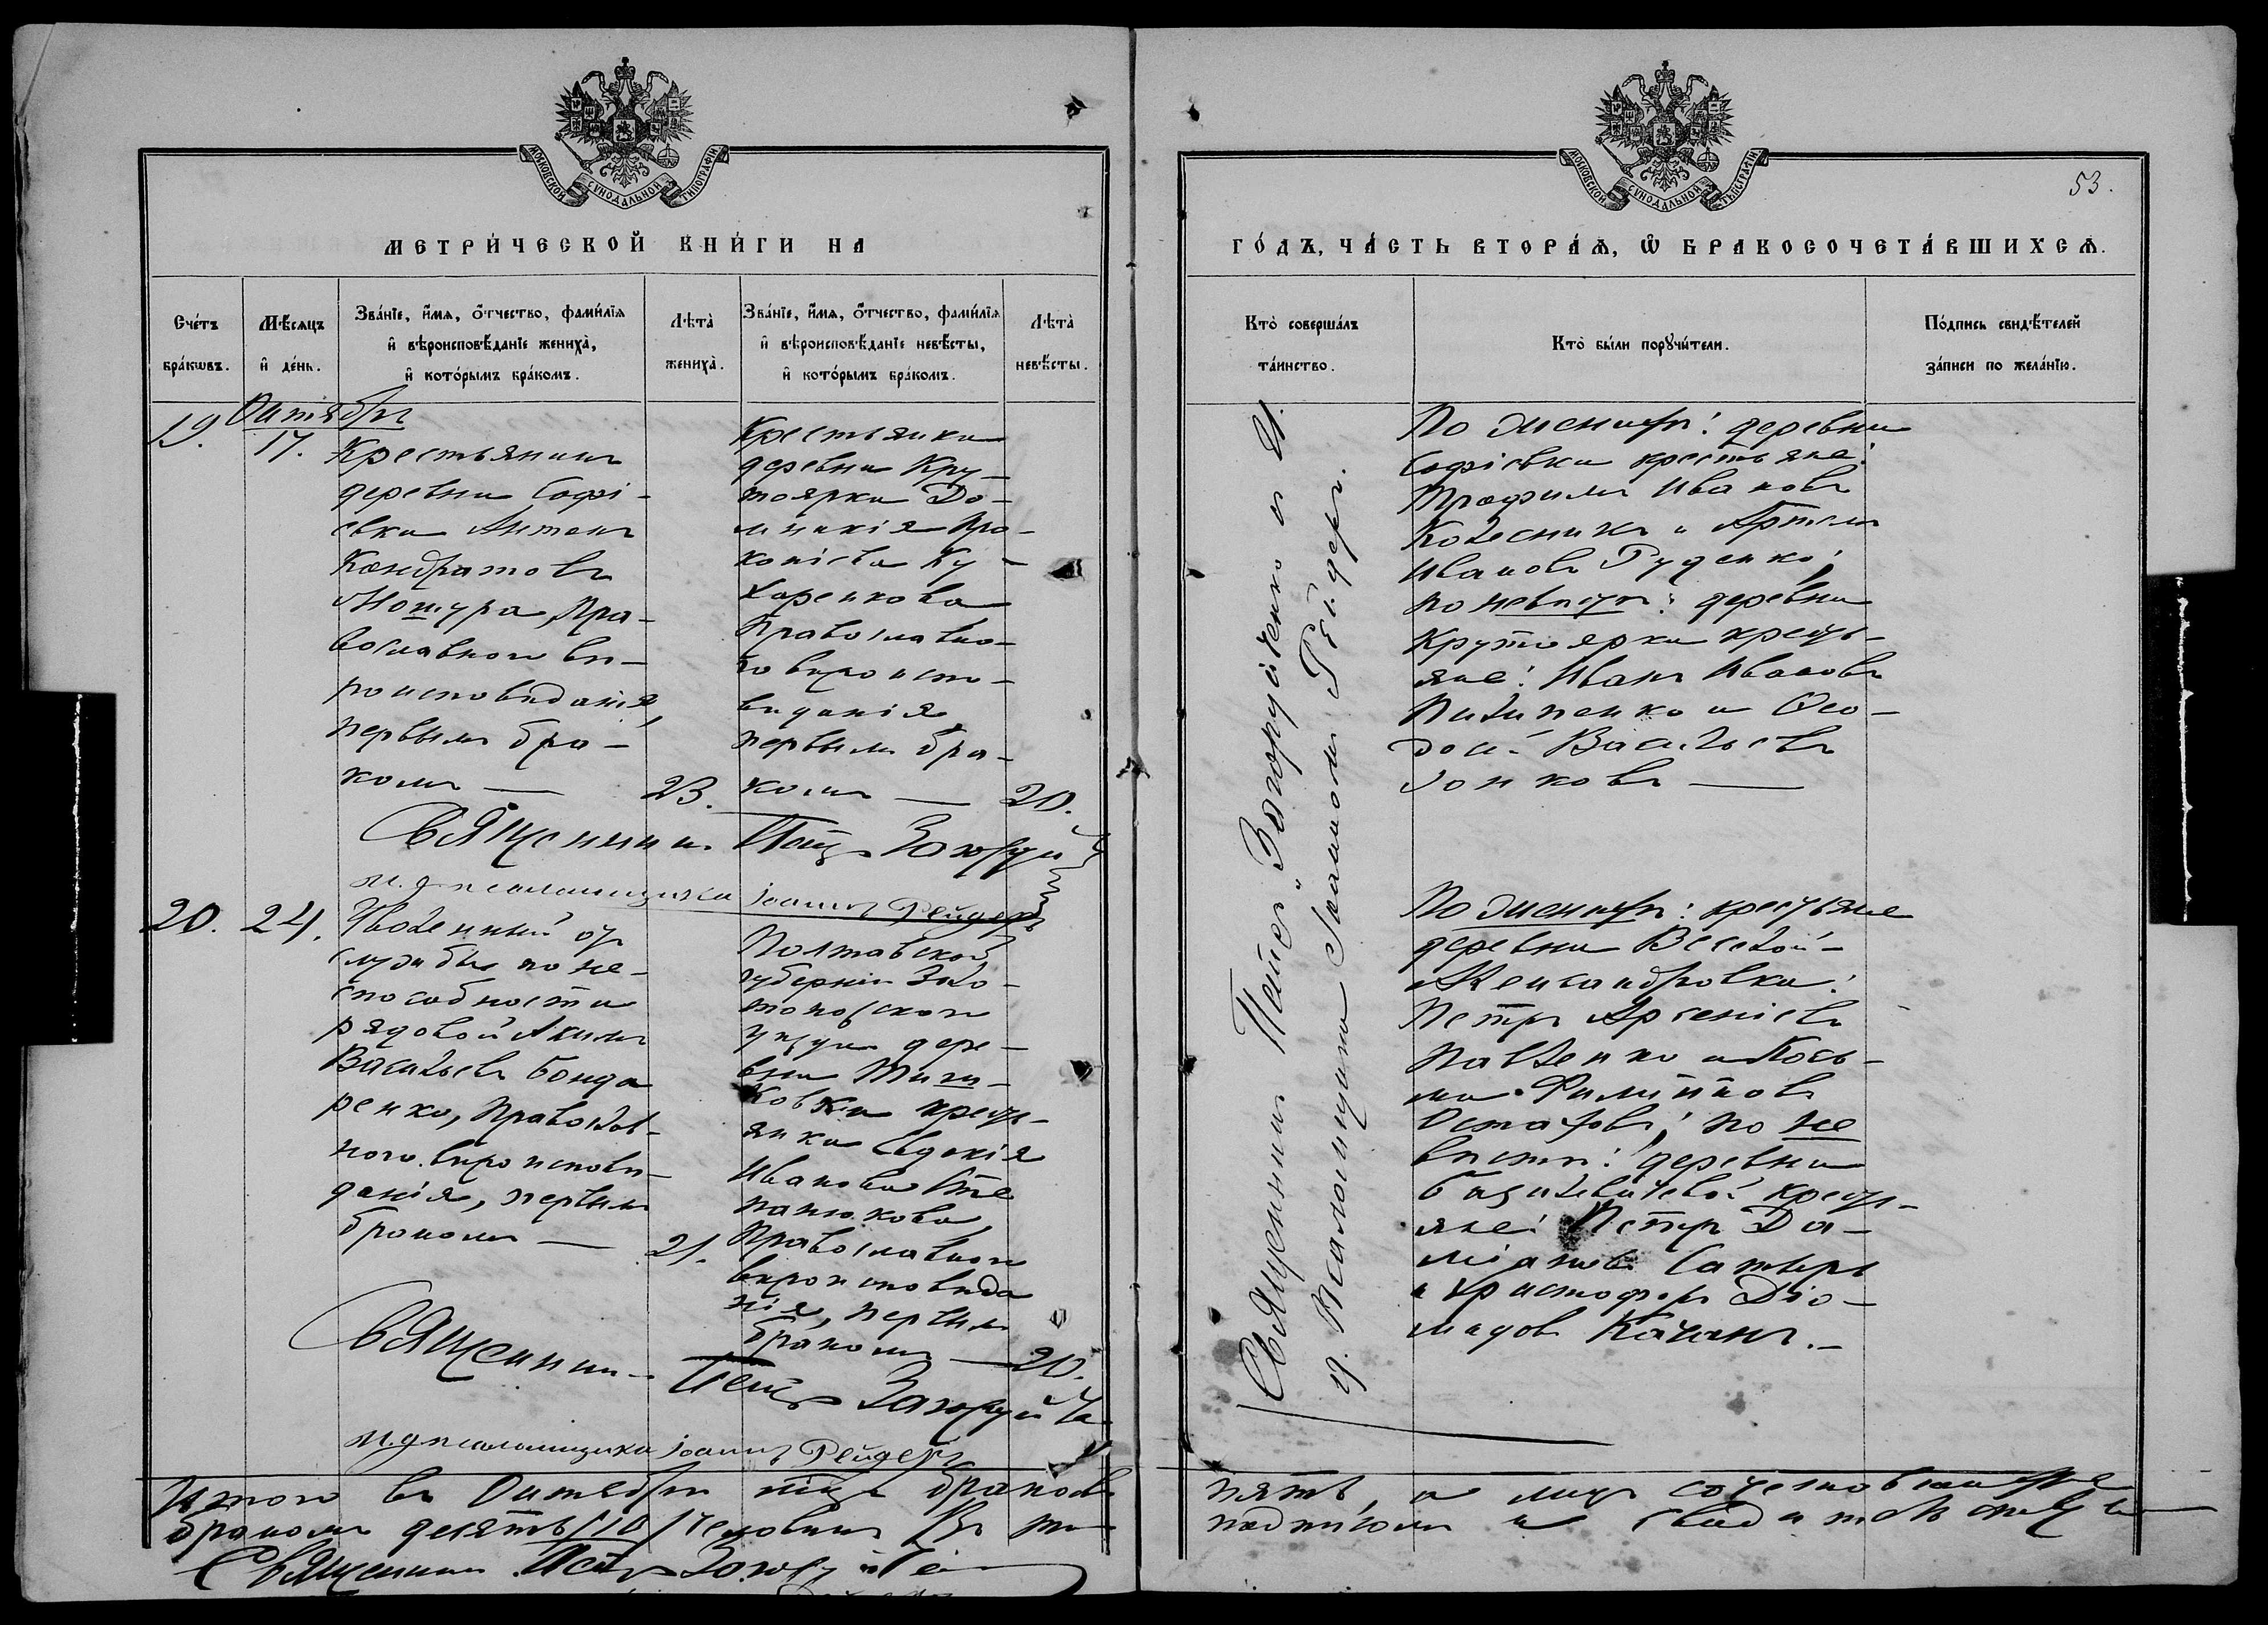 МОСКОВСКОЙ СѴНОДАЛЬНОЙ ТИПОГРАФІИ
МЕТРИ́ЧЕСКОЙ КНИ́ГИ НА
Сче́тъ бра́кѡвъ.
Мѣ́сяцъ и҆ де́нь.
Зва́нїе, и҆́мя, ѻ҆́тчество, фами́лїя
и҆ вѣроисповѣ́данїе жениха̀,
и҆ кото́рымъ бра́комъ.
Лѣта̀ жениха̀.
Зва́нїе, и҆́мя, ѻ҆́тчество, фами́лїя
и҆ вѣроисповѣ́данїе невѣ́сты,
и҆ кото́рымъ бра́комъ.
Лѣта̀ невѣ́сты.
Октябрь
19.
17.
Крестьянинъ
деревни Софі-
евки Антонъ
Кондратовъ
Мотура, Пра-
вославнаго вѣ-
роисповѣданія,
первымъ бра-
комъ —
23.
Крестьянка
деревни Кру-
тоярки До-
мникія Про-
копіева Ку-
харенкова
Православна-
го вѣроиспо-
вѣданія,
первымъ бра-
комъ —
20.
Священникъ Петръ Загоруй
и. д. псаломщика Іоаннъ Рейдеръ
20.
24.
Уволенный отъ
службы по не-
способности
рядовой Акимъ
Васильевъ Бонда
ренко, Православ-
наго вѣроисповѣ-
данія, первымъ
бракомъ —
21.
Полтавской
губерніи Золо-
тоношскаго
уѣзда дере-
вни
ковки кресть-
янка Евдокія
Иванова Сте
панюкова,
Православнаго
вѣроисповѣда
нія, первымъ
бракомъ —
20.
Священникъ Петръ Загоруйче
и. д. псаломщика Іоаннъ Рейдеръ
Итого въ Октябрѣ мѣсяцѣ браковъ
бракомъ десять (10) человѣкъ
Священникъ Петръ
МОСКОВСКОЙ СѴНОДАЛЬНОЙ ТИПОГРАФІИ
53.
ГО́ДЪ, ЧА́СТЬ ВТОРА́Ѧ, Ѡ҆ БРАКОСОЧЕТА́ВШИХСѦ.
Кто̀ соверша́лъ та́инство.
Кто̀ бы́ли порꙋчи́тели.
По́дпись свидѣ́телей
за́писи по жела́нїю.
Священникъ Петръ Загоруйченко и И.
д. Псаломщика Іоаннъ Рейдеръ.
По женихѣ: деревни
Софіевки крестьяне:
Трофимъ Ивановъ
Колесникъ и Артемъ
Ивановъ Руденко;
по невѣстѣ: деревни
Крутоярки кресть-
яне: Иванъ Ивановъ
Пилипенко и Ѳео-
досій Васильевъ
Зонковъ —
По женихѣ: крестьяне
деревни Веселой-
Александровки:
Петръ Арсеніевъ
Павленко и Козь-
ма Филиповъ
Остаховъ; по не
вѣстѣ: деревни
кресть-
яне: Петръ Да-
міановъ
и Христофоръ Діо-
мидовъ Качанъ.—
пять, а лицъ сочетовавшихся